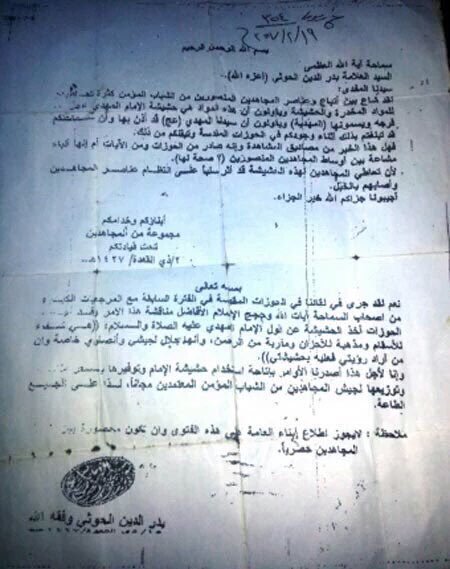 بسم الله الرحمن الرحيم
سماحة آية الله العظمى
السيد العلامة بدر الدين الحوثي (أعزه الله).
سيدنا المفدى:
لقد شاع بين أتباع وعناصر المجاهدين المنصورين من الشباب المؤمن كثرة
للمواد المخدرة والحشيشة ويقولون أن هذه المواد هي حشيشة الإمام المهدي
فرجه ويسمونها (المهدية) ويقولون أن سيدنا المهدي (عج) قد أذن بها وأن
قد تبلغتم بذلك أثناء وجودكم في الحوزات المقدسة وتيقنكم من ذلك.
فهل هذا الخبر من مصاديق المشاهدة وإنه صادر من الحوزات ومن الآيات أم إنها أنباء
مشاعة بين أوساط المجاهدين المنصورين (لا صحة لها).
لأن تعاطي المجاهدين لهذه الحشيشة قد أثر سلباً على انتظام عناصر المجاهدين
وأصابهم بالخبل.
أجيبونا جزاكم الله خير الجزاء.
أبناؤكم وخدامكم
مجموعة من المجاهدين
تحت قيادتكم
٢/ذي القعدة/١٤٢٧هـ
بسمه تعالى
نعم لقد جرى في لقائنا في الحوزات المقدسة في الفترة السابقة مع المرجعيات
من أصحاب السماحة آيات الله وحجج الإسلام الأفاضل مناقشة هذا الأمر
الحوزات أخذ الحشيشة عن قول الإمام المهدي عليه الصلاة والسلام: ((هسي شفاء
للأسقام ومذهبة للأحزان ومقربة من الرحمن، وأنها حلال لجيشي وأنصاري خاصة وإن
من أراد رؤيتي فعليه بحشيشتي)).
وإنا لأجل هذا أصدرنا الأوامر بإتاحة استخدام حشيشة الإمام وتوفيرها
وتوزيعها لجيش المجاهدين من الشباب المؤمن المعتمدين مجاناً، لذا على الجميع
الطاعة.
ملاحظة : لايجوز اطلاع أبناء العامة على هذه الفتوى وان تكون محصورة بين
المجاهدين حصرياً.
بدر الدين الحوثي وفقه الله